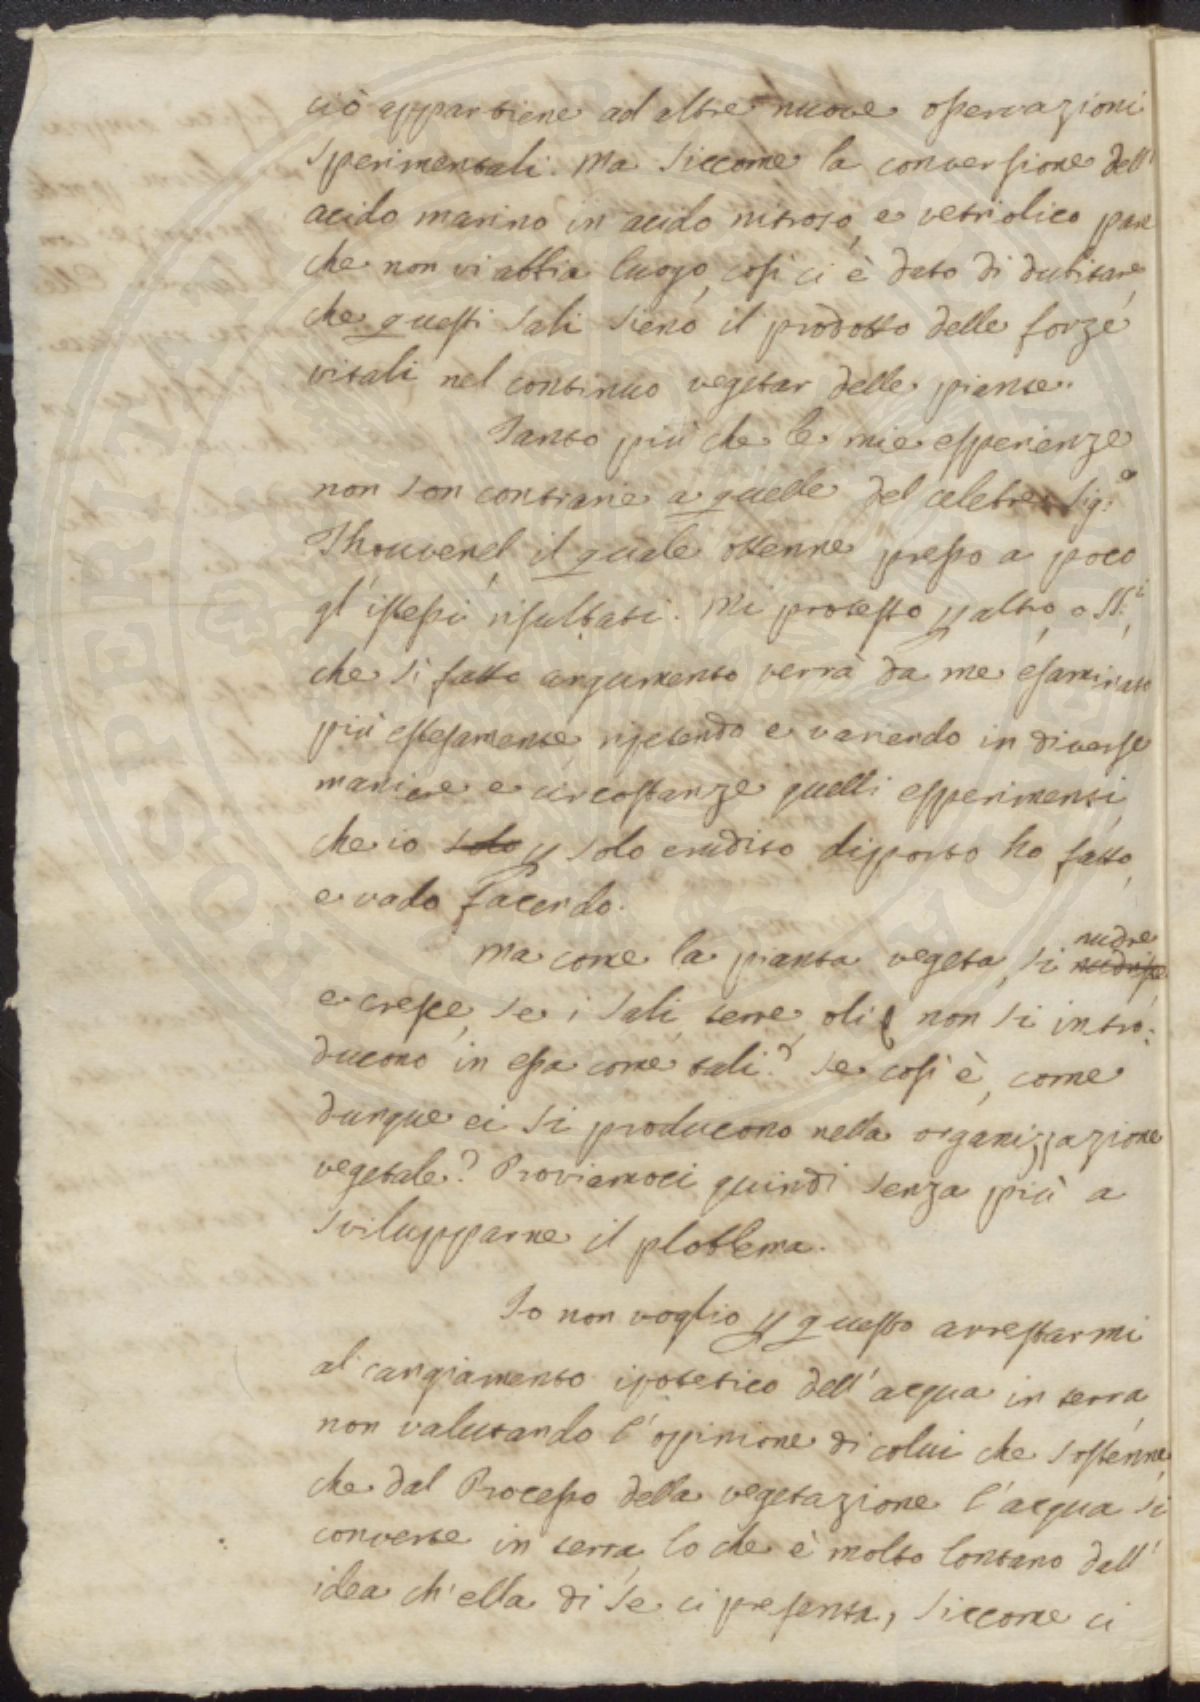 ciò appartiene ad altre nuove osservazioni
sperimentali. Ma siccome la conversione dell'
acido marino in acido nitroso, e vetriolico pare
che non vi abbia luogo, così ci è dato di dubitare,
che questi sali sieno il prodotto delle forze
vitali nel continuo vegetar delle piante.
Tanto più che le mie esperienze
non son contrarie a quelle del celebre Sig.o
Thouvenel, il quale ottenne presso a poco
gl'istessi risultati. Mi protesto p altro, o SS.i,
che sì fatto argumento verrà da me esaminato
più estesamente, ripetendo e variando in diverse
maniere e circostanze quelli esperimenti,
che io solo p solo erudito diporto ho fatto,
e vado facendo.
Ma come la pianta vegeta, si nudre
nudrisce
e cresce, se i sali, terre, oli non si intro:
ducono in essa come tali? Se così è, come
dunque ei si producono nella organizzazione
vegetale? Proviamoci quindi senza più a
svilupparne il ploblema.
Io non voglio p questo arrestarmi
al cangiamento ipotetico dell'acqua in terra,
non valutando l'opinione di colui che sostenne,
che dal Processo della vegetazione l'acqua si
converte in terra, lo che è molto lontano dall'
idea ch'ella di se ci presenta, siccome ci